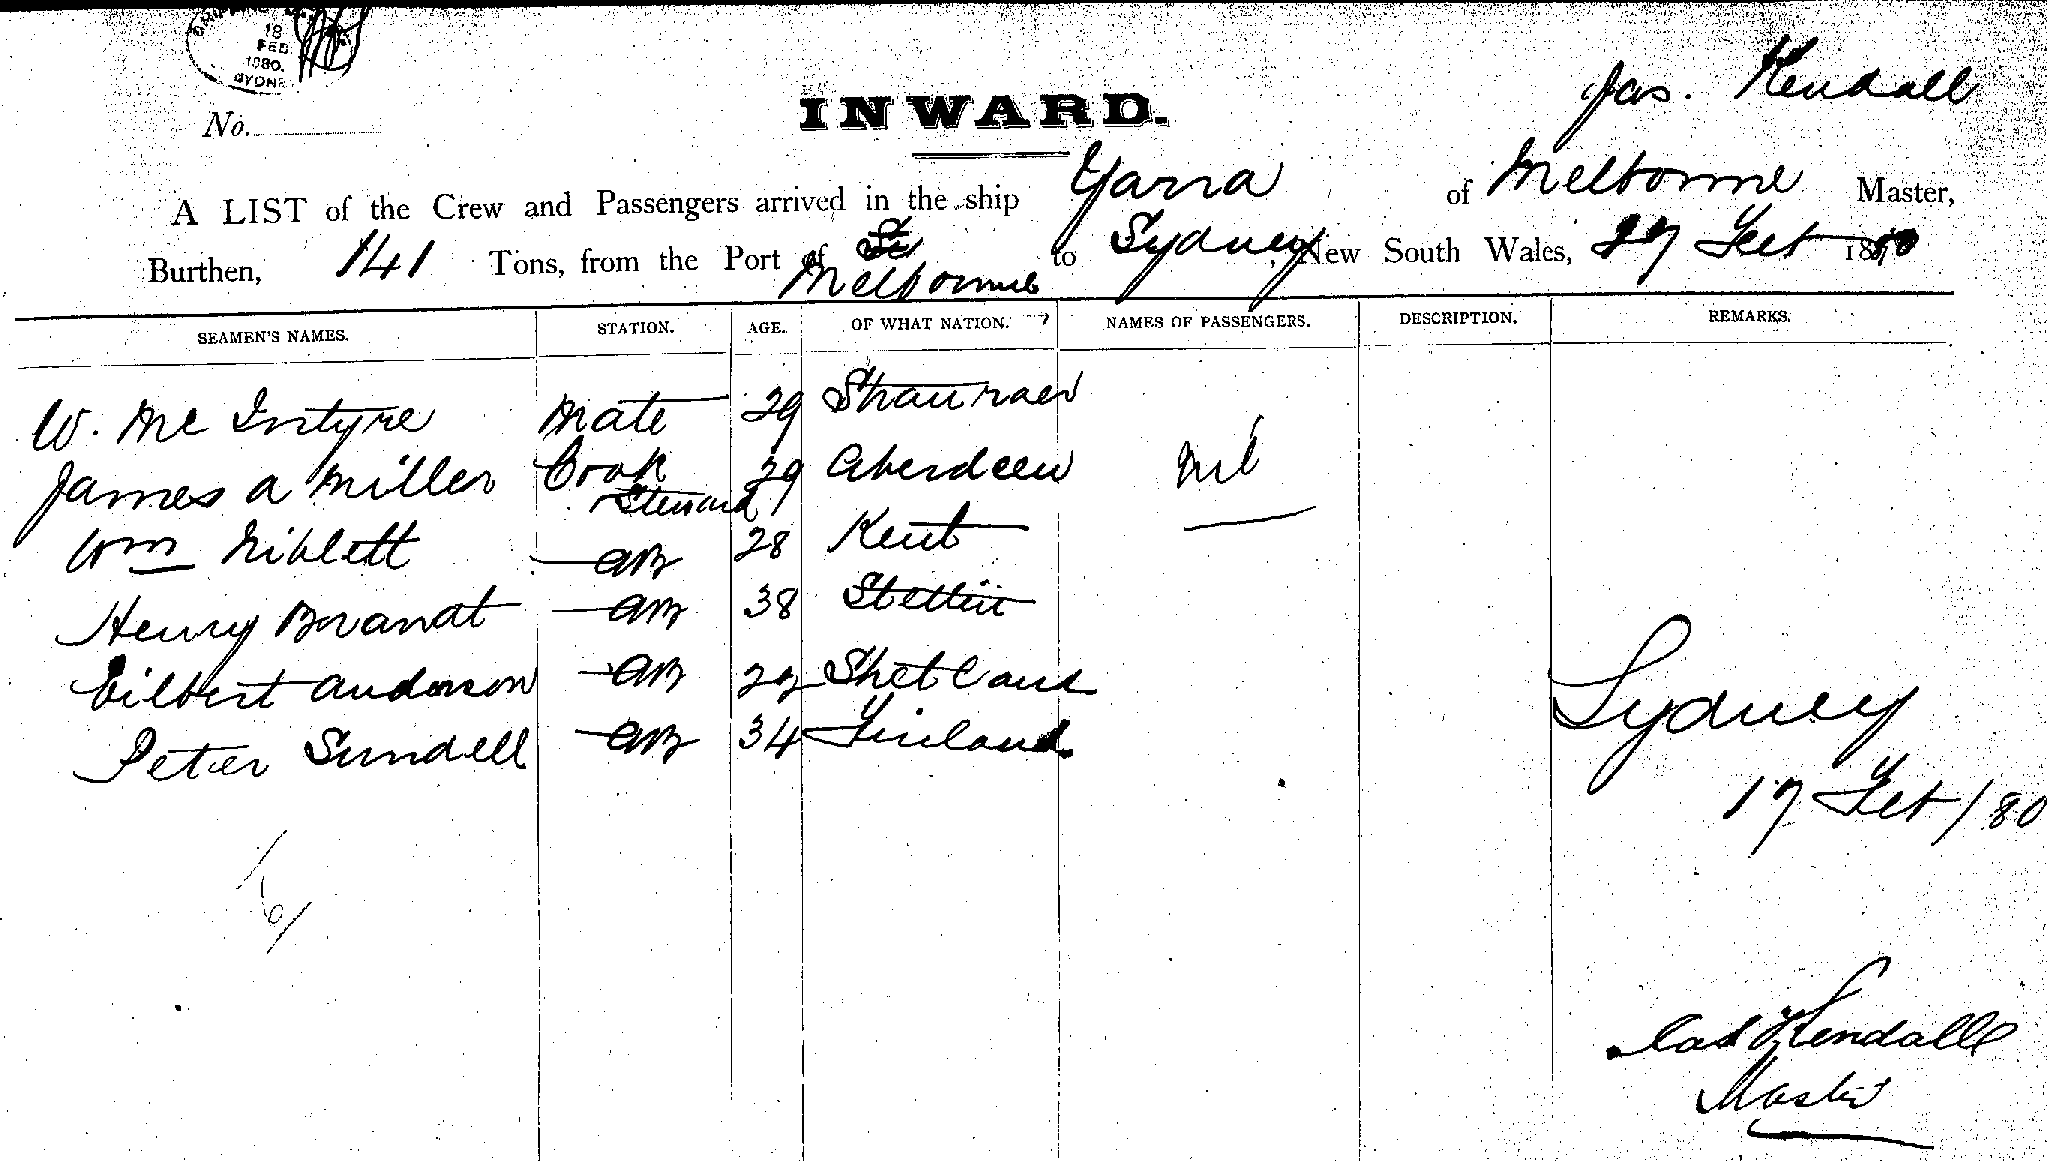 18
FEB
1880.
SYDNE
No.
INWARD.
Jas. Kendall
A LIST of the Crew and Passengers arrived in the ship Yarra of Melbourne Master,
Burthen, 141 Tons, from the Port of Melbourne to Sydney, New South Wales, 27 Feb 1880
SEAMEN'S NAMES. STATION. AGE. OF WHAT NATION. NAMES OF PASSENGERS. DESCRIPTION. REMARKS.
W. Mc Intyre Mate 29
James A Miller Cook Steward 29 Aberdeen Nil
Wm Niblett AB 28 Kent
Henry Brandt AB 38 Stettin
Gilbert Anderson AB 22 Shetland
Peter Sundell AB 34 Finland
Sydney
17 Feb / 80
Jas Kendall
Master